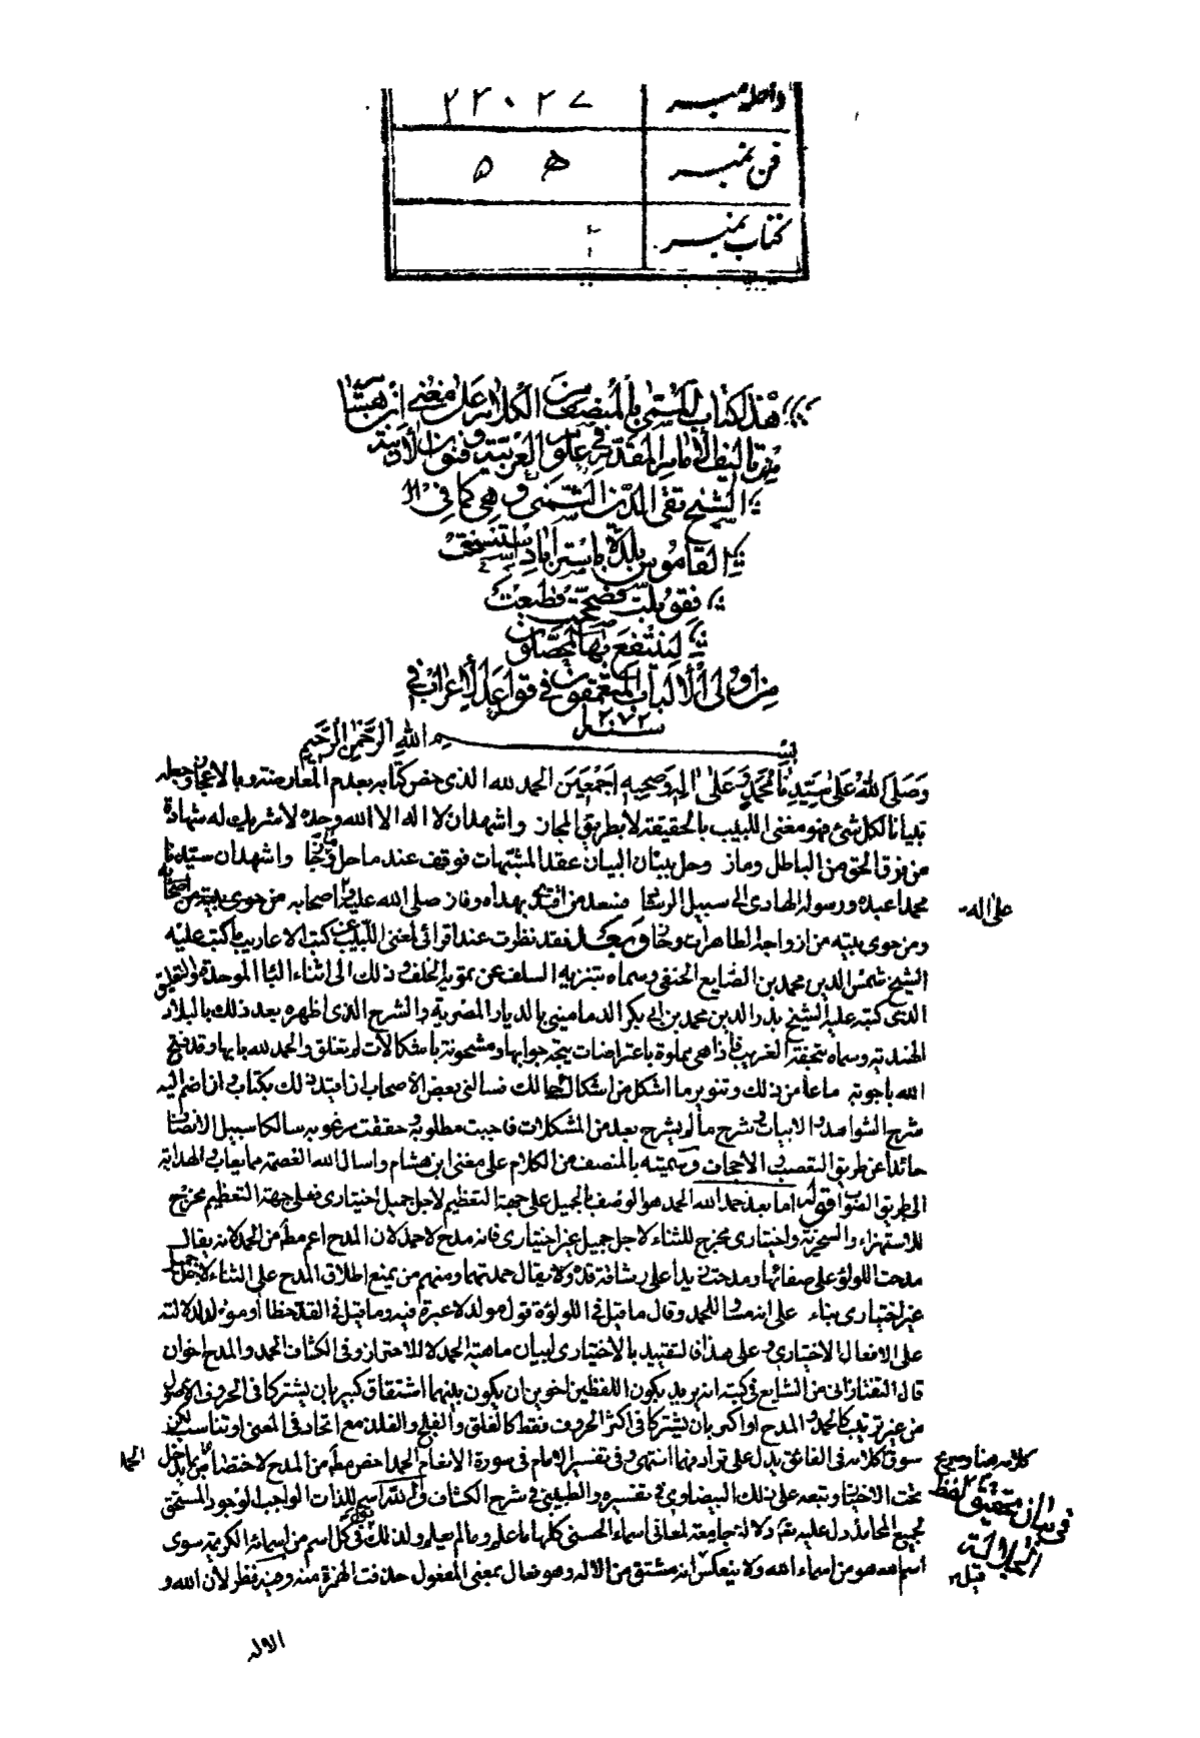 داخله نمبر ۲۲۰۲۷
فن نمبر ۵
کتاب نمبر
هذا كتاب المسمى بالمنصف من الكلام على مغنى ابن هشام
من تاليف الامام المقدم في علوم العربية وفنون الادبية
الشيخ تقى الدين الشمنى وهى كما فى
القاموس بلدة باستراباد استنسخت
فقوبلت فصححت فطبعت
لينتفع بها المحصلون
من اولى الالباب المتعمقون في قواعد الاعراب في
سنه ١٢٧٢
بسم الله الرحمن الرحيم
وصلى الله على سيدنا محمد وعلى اله وصحبه اجمعين الحمد لله الذى خص كتابه بعدم المعارضة وبالاعجاز وجعله
تبيانا لكل شئ فهو مغنى اللبيب بالحقيقة لا بطريق المجاز واشهد ان لا اله الا الله وحده لا شريك له شهادة
من فرق الحق من الباطل وماز وحل ببنان البيان عقد المشتبهات فوقف عند ما حل وجاز واشهد ان سيدنا
محمدا عبده ورسوله الهادى الى سبيل الرشاد فسعد من اقتدى بهداه وفاز صلى الله عليه واصحابه من حوى
على اله
ومن حوى بيته من ازواجه الطاهرات وحاز وبعد فقد نظرت عند اقرائى لمغنى اللبيب عن كتب الاعاريب ما كتب عليه
الشيخ شمس الدين محمد بن الصايغ الحنفى وسماه بتنزيه السلف عن تمويه الخلف وذلك الى اثناء الباء الموحدة والتعليق
الذى كتبه عليه الشيخ بدر الدين محمد بن ابى بكر الدمامينى بالديار المصرية والشرح الذى اظهره بعد ذلك بالبلاد
الهندية وسماه بتحفة الغريب فاذا هى مملوة باعتراضات يتجه جوابها ومشحونة باشكالات لم تغلق والحمد لله بابها وقد فتح
الله باجوبة ما عا من ذلك وتنوير ما اشكل من اشكال حالك فسالنى بعض الاصحاب ان ابتد ذلك بكتاب وان اضم اليه
شرح الشواهد والابيات وشرح ما لم يشرح بعد من المشكلات فاجبت مطلوبه وحققت مرغوبه سالكا سبيل الانصاف
حائدا عن طريق التعصب والاجحاف وسميته بالمنصف من الكلام على مغنى ابن هشام واسال الله العصمة مما يعاب والهداية
الى طريق الصواب قوله اما بعد حمد الله الحمد هو الوصف بالجميل على جهة التعظيم لاجل جميل اختيارى فعلى جهة التعظيم مخرج
للاستهزاء والسخرية واختيارى مخرج للثناء لاجل جميل غير اختيارى فانه مدح لا حمد لان المدح اعم مط من الحمد لانه يقال
مدحت اللؤلؤ على صفائها ومدحت زيدا على رشاقة قده ولا يقال حمدتهما ومنهم من يمنع اطلاق المدح على الثناء لاجل جميل
غير اختيارى بناء على انه مساو للحمد وقال ما قيل فى اللولوة قول مولد لا عبرة فيه وما قيل فى القد خطا او مؤول لدلالته
على الافعال الاختيارى وعلى هذا فالتقييد بالاختيارى لبيان ماهية الحمد لا للاحتراز وفى الكشاف الحمد والمدح اخوان
قال التفتازانى من الشايع فى كتبه انه يريد بكون اللفظين اخوين ان يكون بينهما اشتقاق كبير بان يشتركا فى الحروف الاصول
من غير ترتيب كالحمد والمدح او اكبر بان يشتركا فى اكثر الحروف فقط كالفلق والفلج والفلذ مع اتحاد فى المعنى او تناسب لكن
سوق كلامه فى الفائق يدل على ترادفهما انتهى وفى تفسير الامام فى سورة الانعام الحمد اخص مط من المدح لاختصاص بما يدخل الحمد
كلامه هنا وصريح
تحت الاختيار وتبعه على ذلك البيضاوى فى تفسيره والطيبى فى شرح الكشاف والله اسم للذات الواجب الوجود المستحق
فى بيان تحقيق لفظ
الجلالة
لجميع المحامد دل عليه تم دلالة جامعة لمعانى اسماء الحسنى كلها ما علم وما لم يعلم ولذلك يقال فى كل اسم من اسمائه الكريمة سوى
اسم الله هو من اسماء الله ولا ينعكس انه مشتق من الاله وهو فعال بمعنى المفعول حذفت الهمزة منه وفيه نظر لان الله و
قيل
الاله